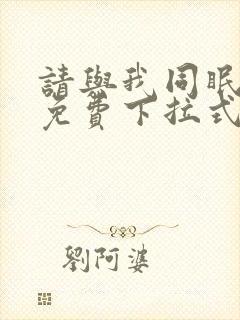 請與我同眠
免費下拉式
劉阿婆